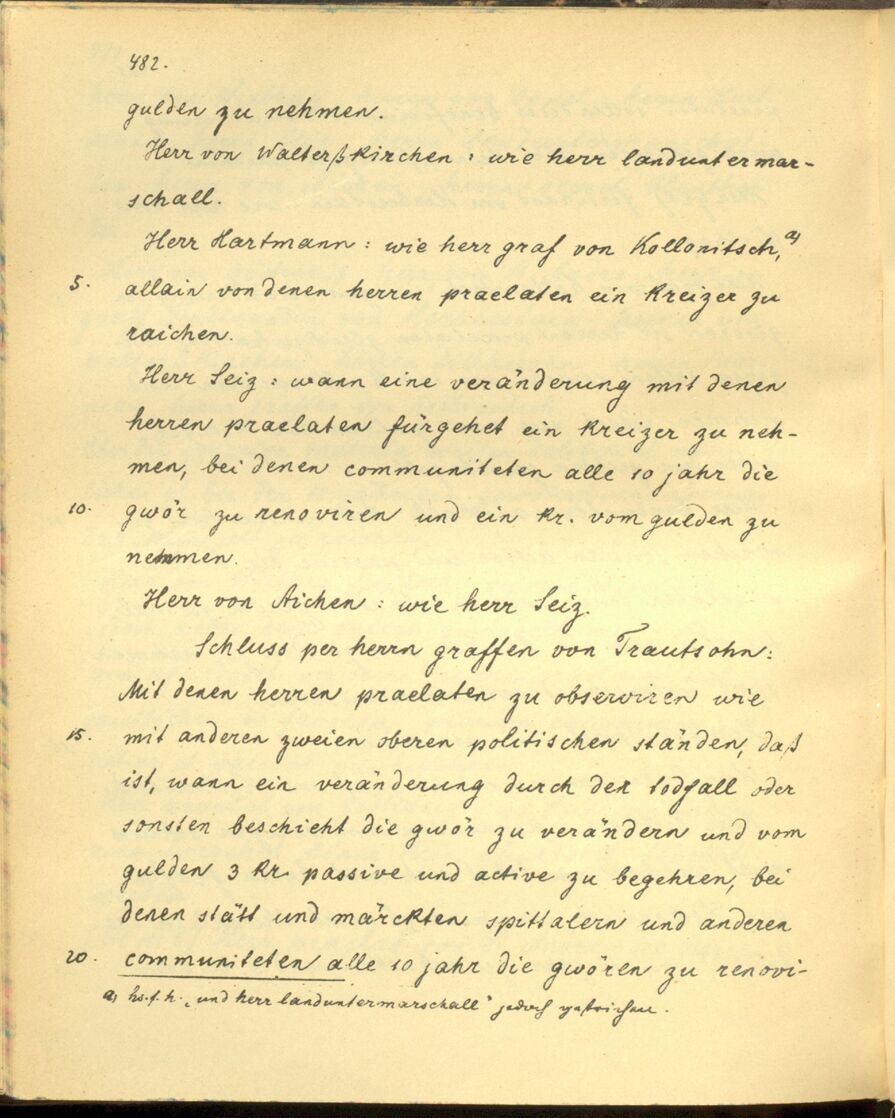 482.
gulden zu nehmen.
Herr von Walterßkirchen : wie herr landuntermar-
schall.
Herr Hartmann : wie herr graf von Kollonitsch, a)
5. allain von denen herren praelaten ein kreizer zu
raichen.
Herr Seiz : wann eine veränderung mit denen
herren praelaten fürgehet ein kreizer zu neh-
men, bei denen communiteten alle 10 jahr die
10. gwör zu renoviren und ein kr. vom gulden zu
nehmen.
Herr von Aichen : wie herr Seiz.
Schluss per herrn graffen von Trautsohn :
Mit denen herren praelaten zu observiren wie
15. mit anderen zweien oberen politischen ständen, daß
ist, wann ein veränderung durch den todfall oder
sonsten beschieht die gwör zu verändern und vom
gulden 3 kr. passive und active zu begehren, bei
denen stätt und märckten spittalern und anderen
20. communiteten alle 10 jahr die gwören zu renovi-
a) hs. f. h. „und herr landuntermarschall" jedoch gestrichen.